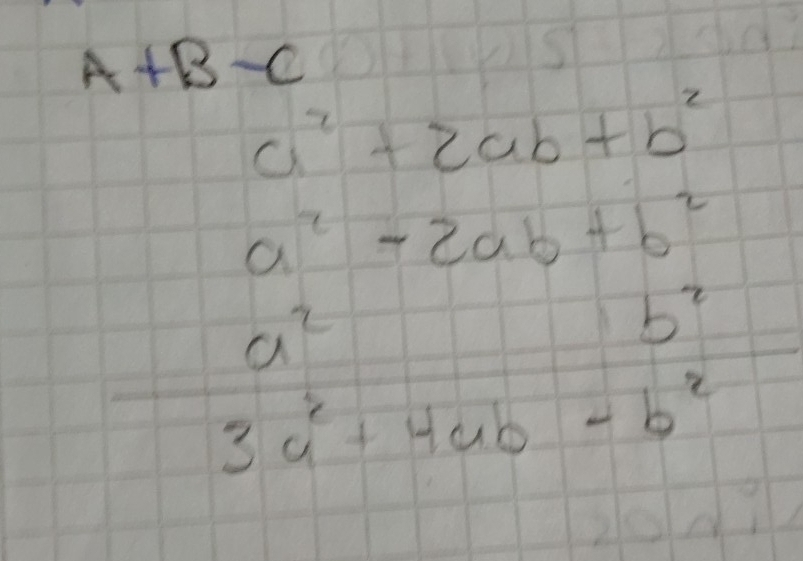 A+B-C
a² + 2ab + b²
a² - 2ab + b²
a² b²
3a² + 4ab - b²